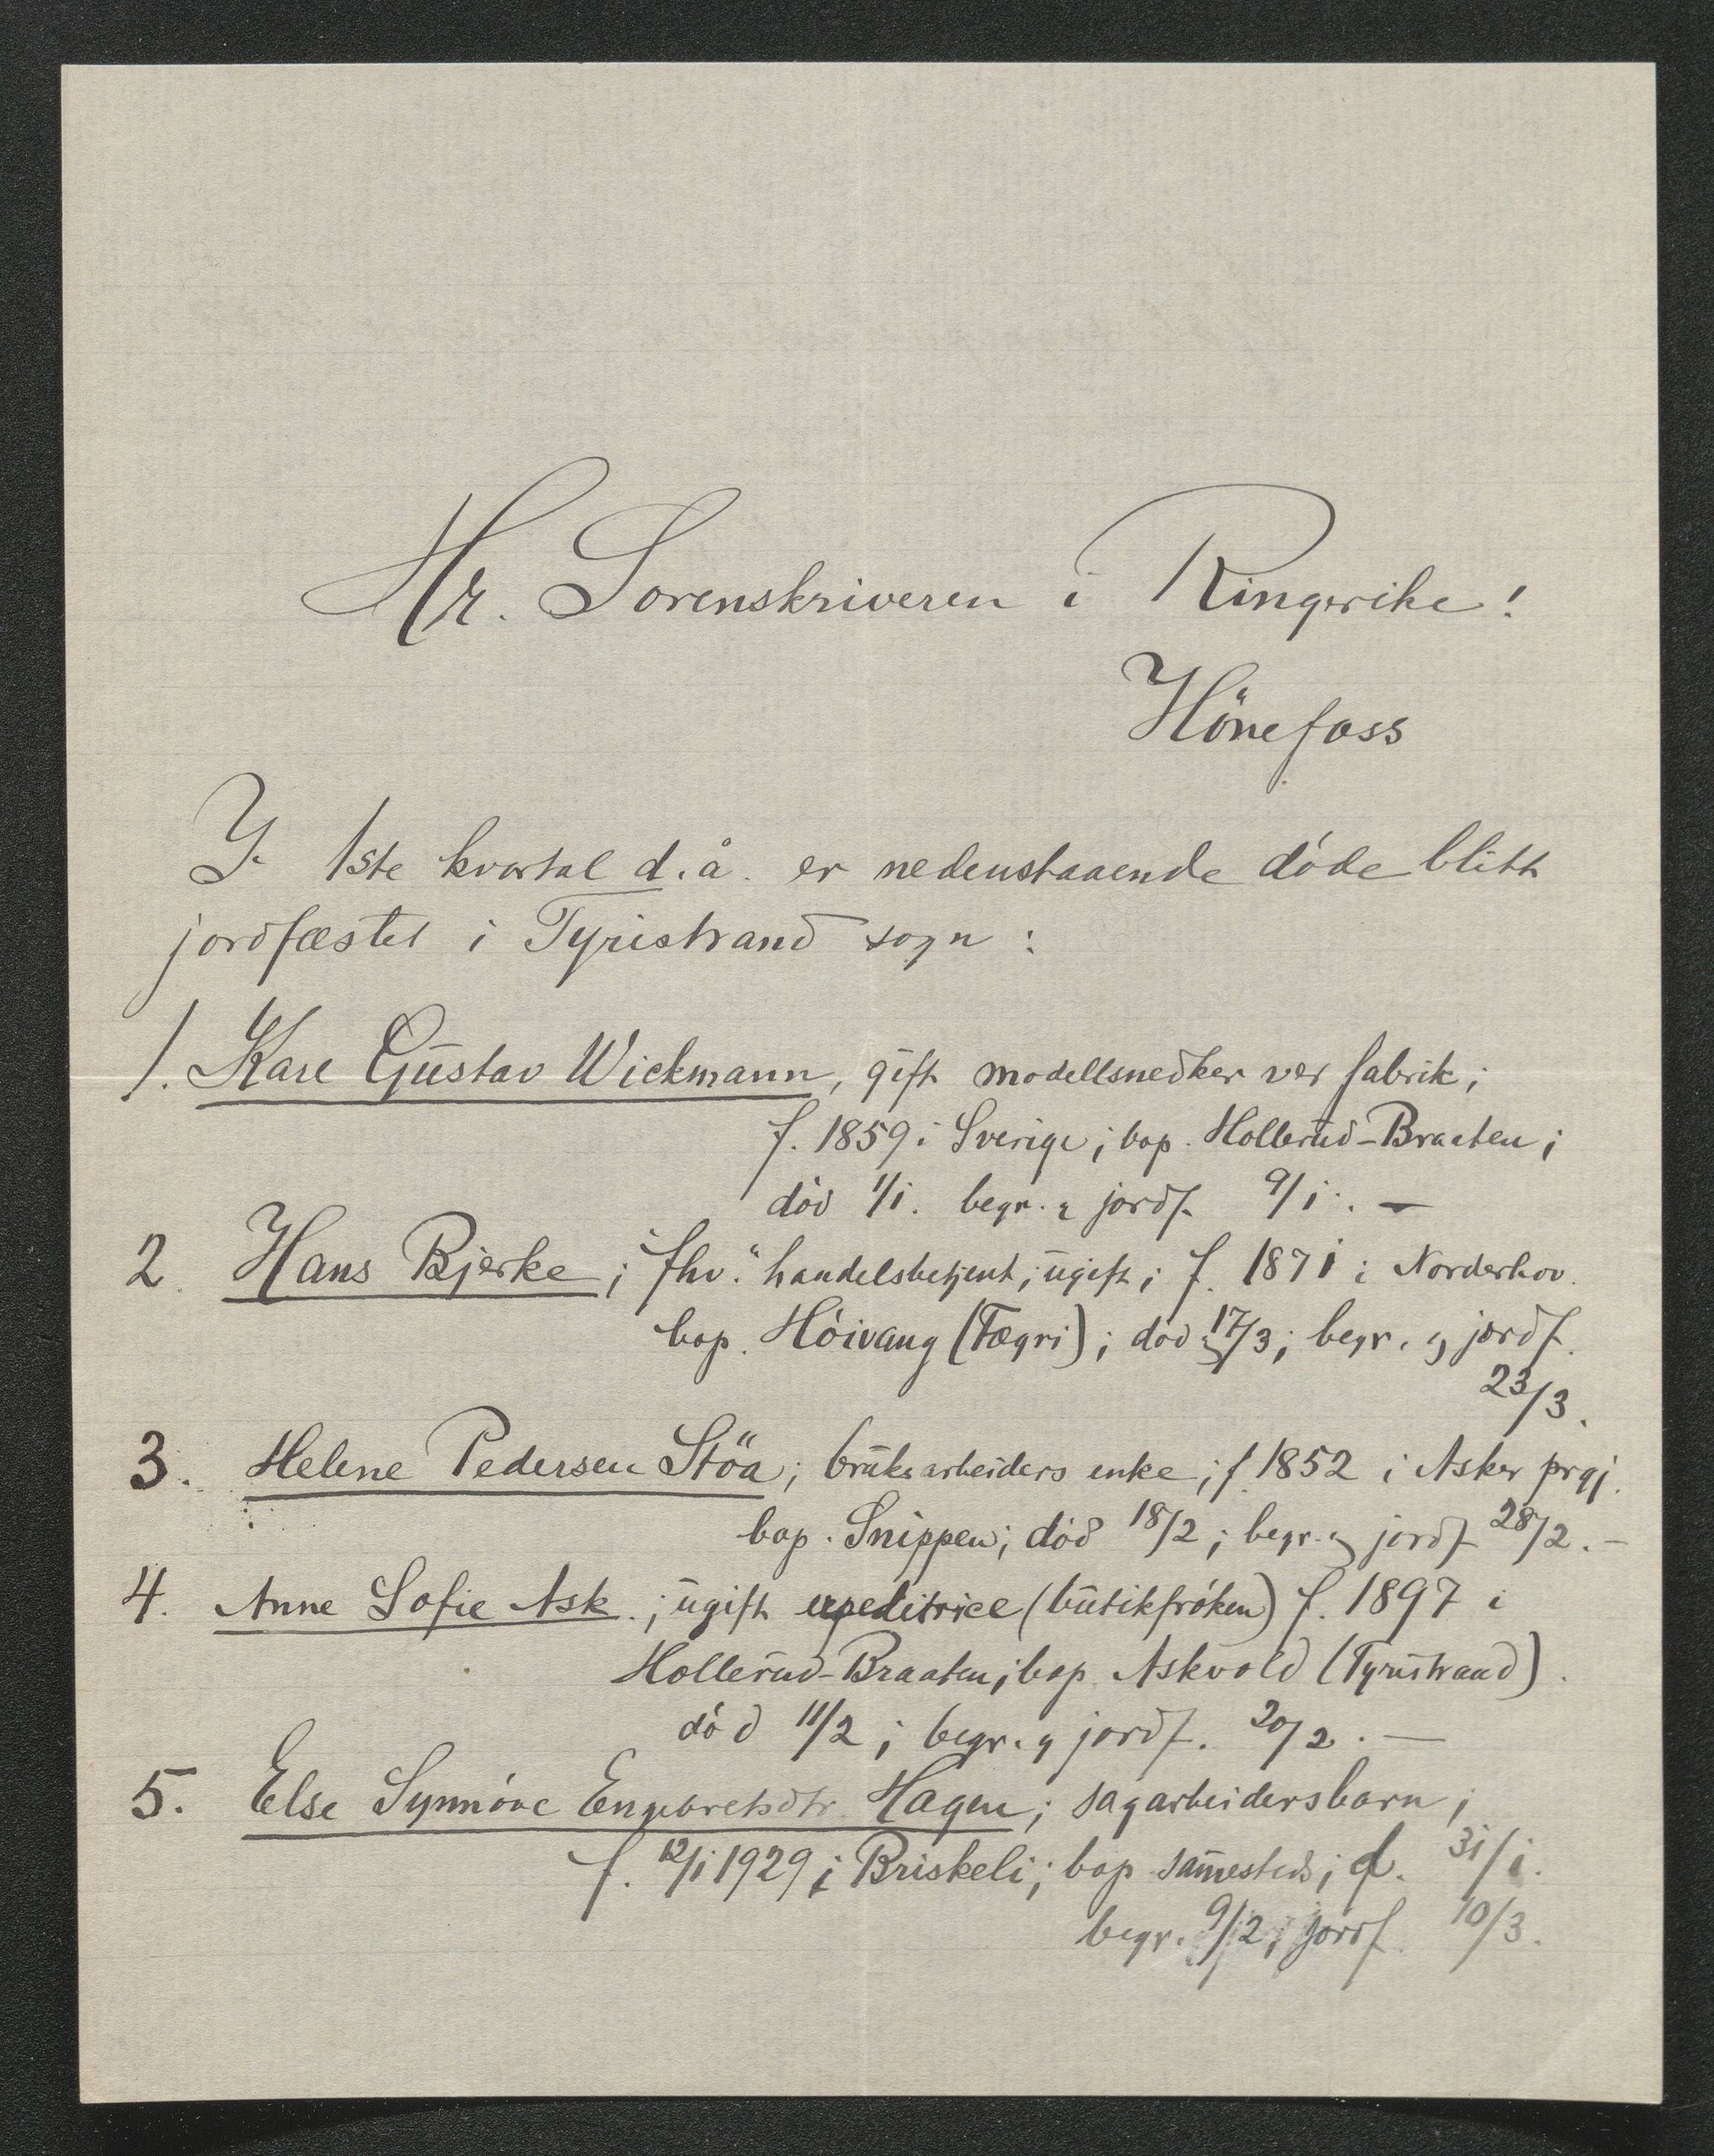 Hr. Sorenskriveren i Ringerike!
Hönefoss
I 1ste kvartal d.å. er nedenstaaende døde blitt
jordfæstet i Tyristrand sogn:
1. Karl Gustav Wickmann, gift modellsnedker ved fabrik;
f. 1859 i Sverige; bop. Hollerud-Braaten;
død 1/1. begr. & jordf. 9/1. –
2. Hans Bjerke; "fhv." handelsbetjent; ugift; f. 1871 i Norderhov.
bop. Höivang (Fægri); død 17/3; begr. & jordf.
23/3.
3. Helene Pedersen Stöa; bruksarbeiders enke; f. 1852 i Asker prgj.
bop. Snippen; død 18/2; begr. & jordf 28/2. –
4. Anne Sofie Ask.; ugift expeditrice (butikfrøken) f. 1897 i
Hollerud-Braaten; bop. Askvold (Tyristrand).
død 11/2; begr. & jordf. 20/2. –
5. Else Synnöve Engebretsdtr. Hagen; sagarbeidersbarn;
f. 12/1 1929 i Briskeli; bop sammesteds; d. 31/1.
begr. 9/2; jordf. 10/3.